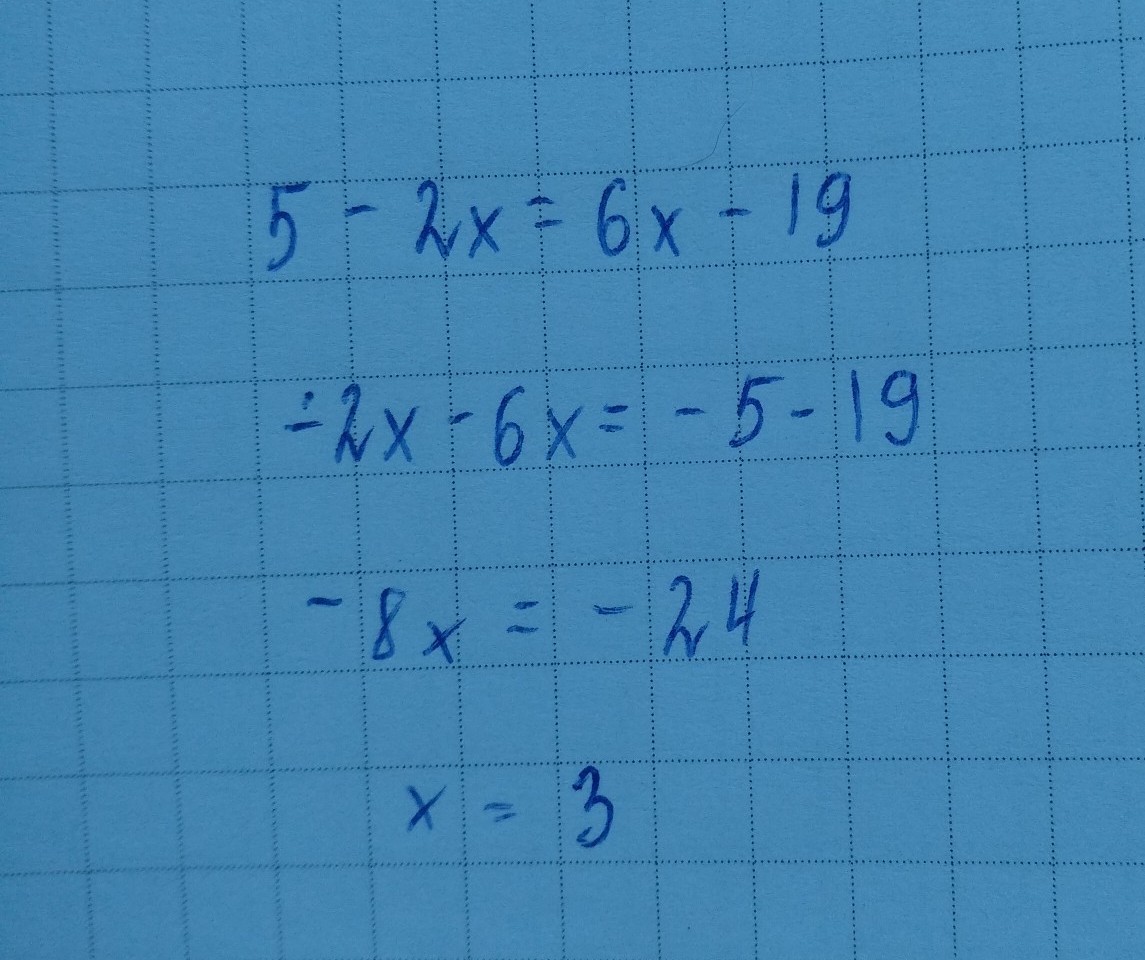 5 - 2x = 6x - 19
÷2x - 6x = - 5 - 19
- 8x = - 24
x = 3